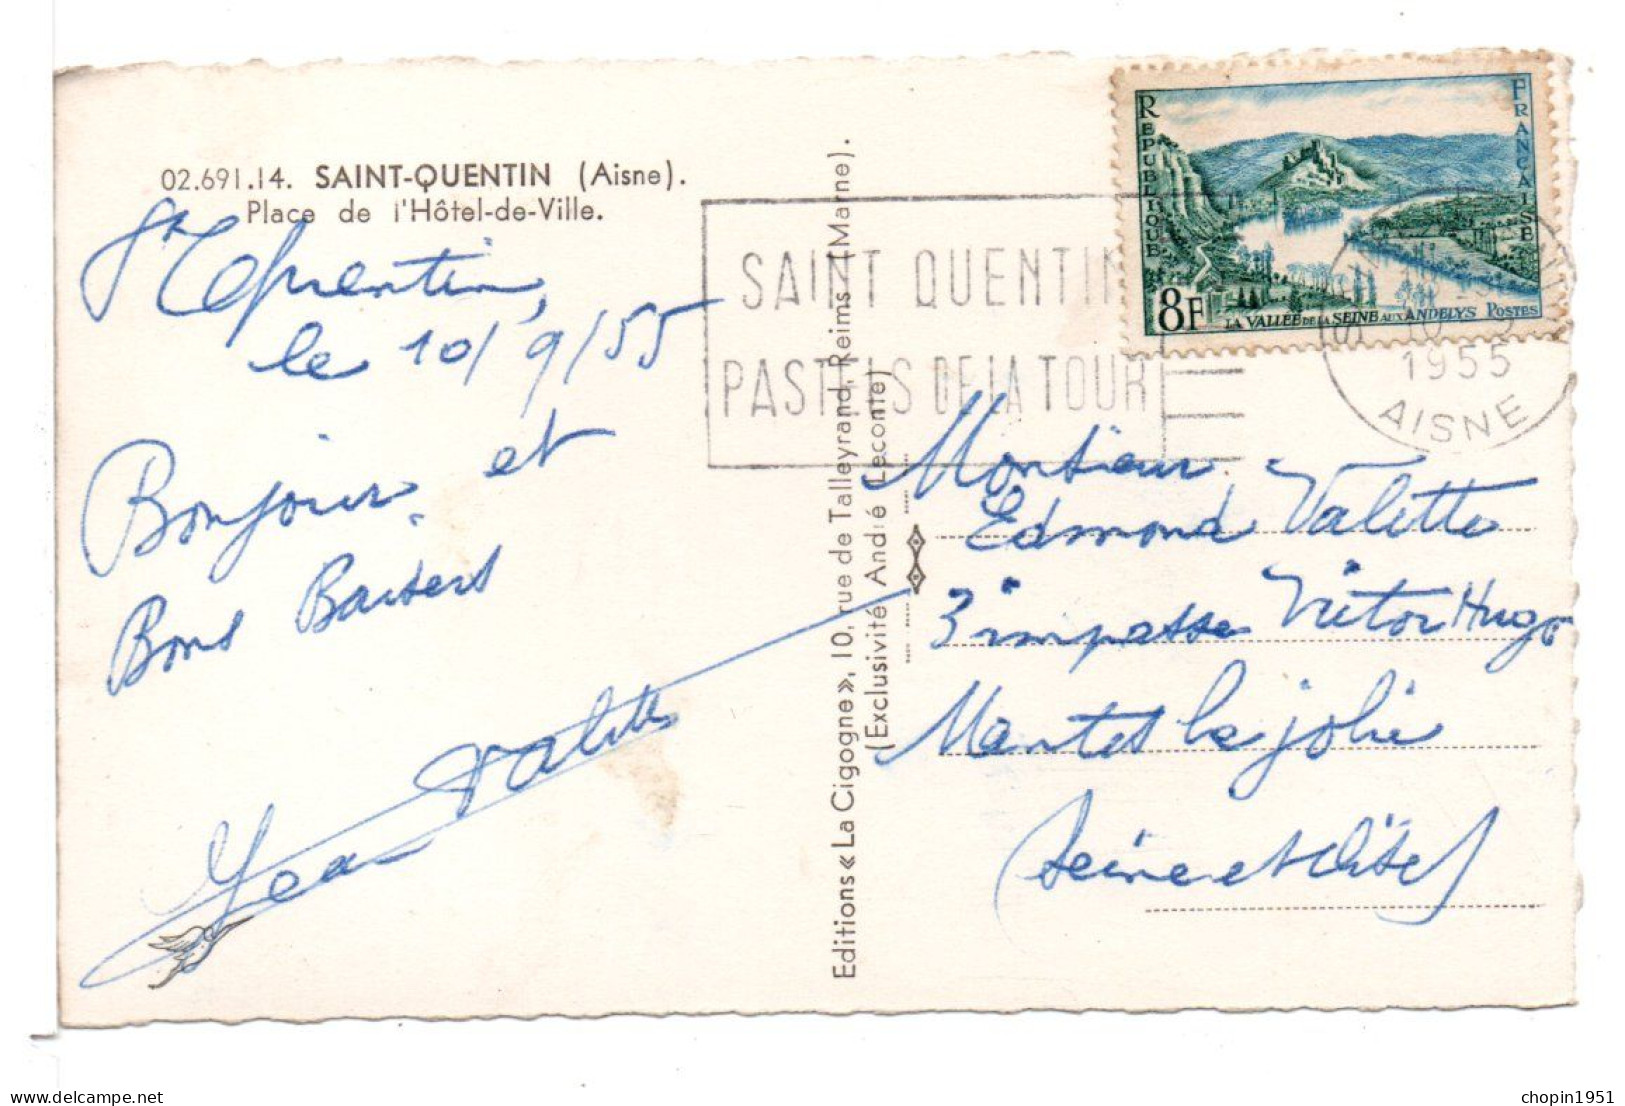 02.691.14. SAINT-QUENTIN (Aisne).
Place de l'Hôtel-de-Ville.
St Quentin,
le 10/9/55
Bonjour et
Bons Baisers
Jean Valette
Editions « La Cigogne », 10, rue de Talleyrand, Reims (Marne).
(Exclusivité André Leconte)
SAINT QUENTIN
PASTELS DE LA TOUR
REPUBLIQUE
FRANÇAISE
8F
LA VALLÉE DE LA SEINE AUX ANDELYS POSTES
10
1955
AISNE
Monsieur
Edmond Valette
3 impasse Victor Hugo
Mantes la jolie
Seine et Oise
delcampe.net
chopin1951